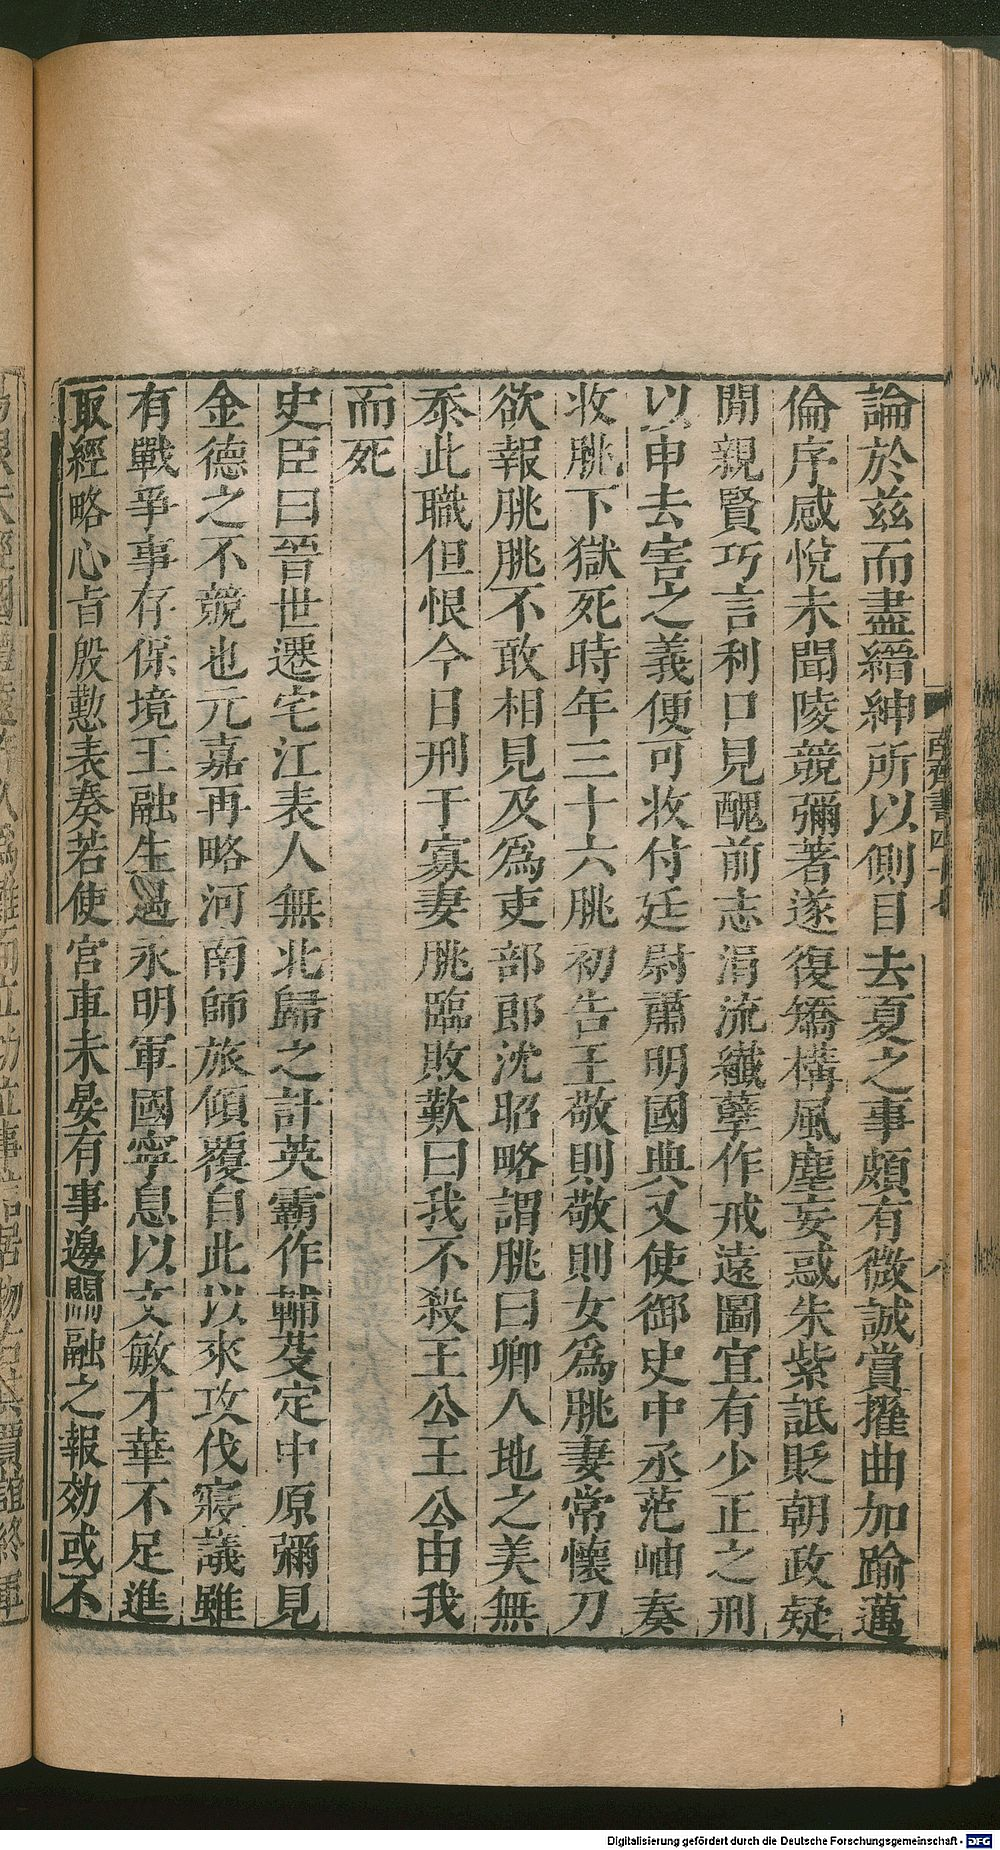 論於兹而盡縉紳所以側目去夏之事頗有微誠賞擢曲加踰邁
倫序感悅未聞陵競彌著遂復矯構風塵妄惑朱紫詆貶朝政疑
閒親賢巧言利口見醜前志涓流纖孽作戒遠圖宜有少正之刑
以申去害之義便可收付廷尉肅明國典又使御史中丞范岫奏
收朓下獄死時年三十六朓初告王敬則敬則女爲朓妻常懷刀
欲報朓朓不敢相見及爲吏部郎沈昭略謂朓曰卿人地之美無
忝此職但恨今日刑于寡妻朓臨敗歎曰我不殺王公王公由我
而死
史臣曰晉世遷宅江表人無北歸之計英霸作輔芟定中原彌見
金德之不競也元嘉再略河南師旅傾覆自此以來攻伐寢議雖
有戰爭事存保境王融生遇永明軍國寧息以文敏才華不足進
取經略心旨殷懃表奏若使宮車未晏有事邊關融之報効或不
南齊書四十七
八
Digitalisierung gefördert durch die Deutsche Forschungsgemeinschaft - DFG